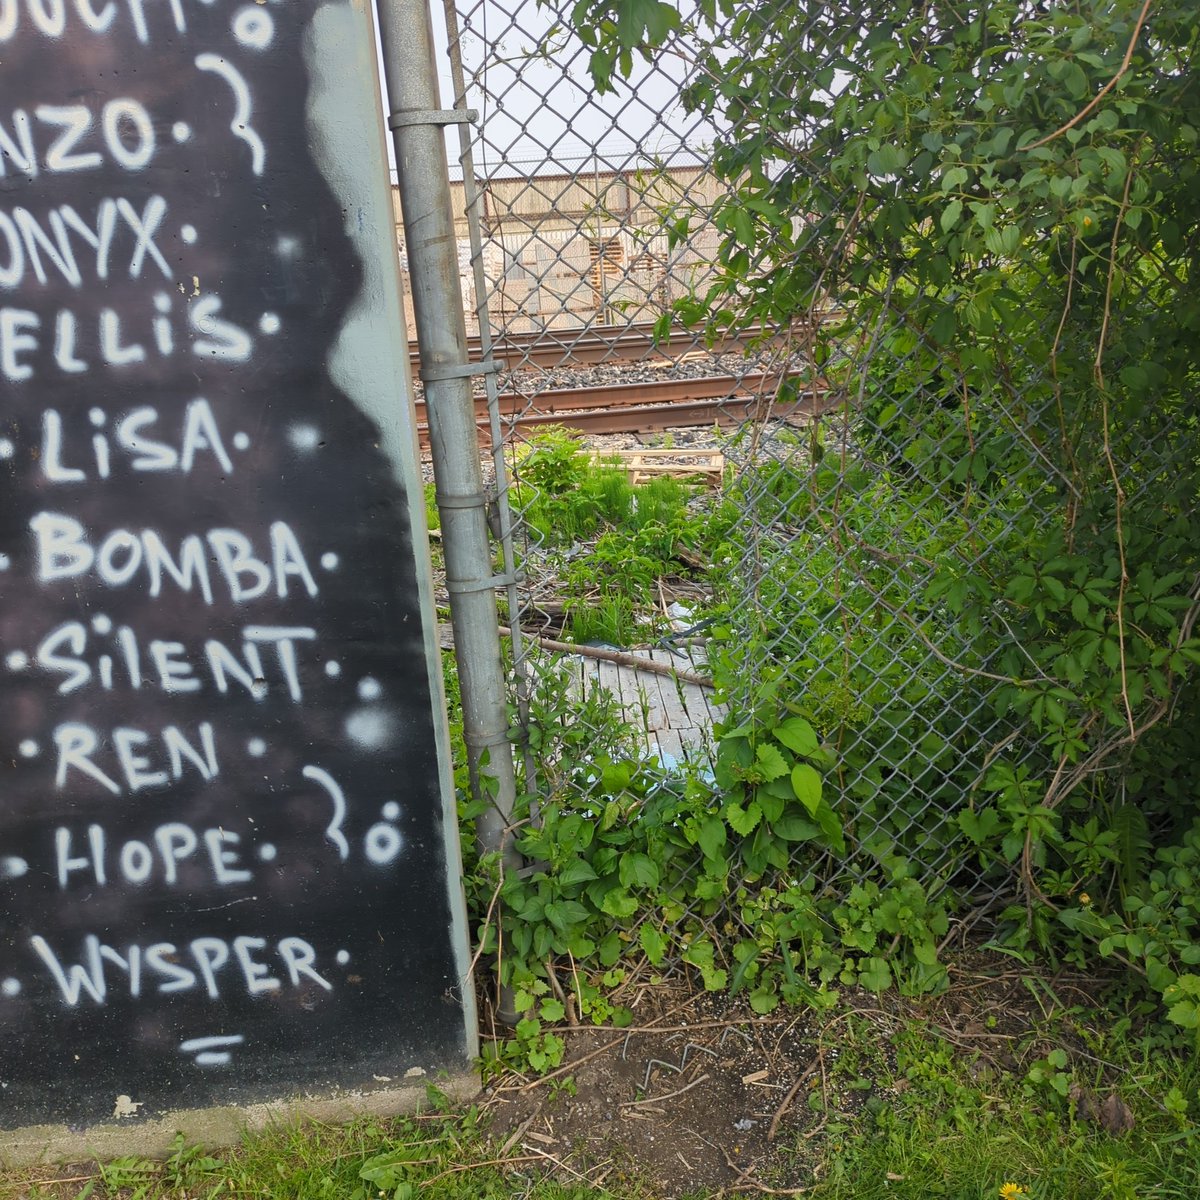 NZO.
ONYX.
ELLiS.
. LiSA.
. BOMBA.
. SilENT.
. REN .
. HOPE.
. WYSPER.